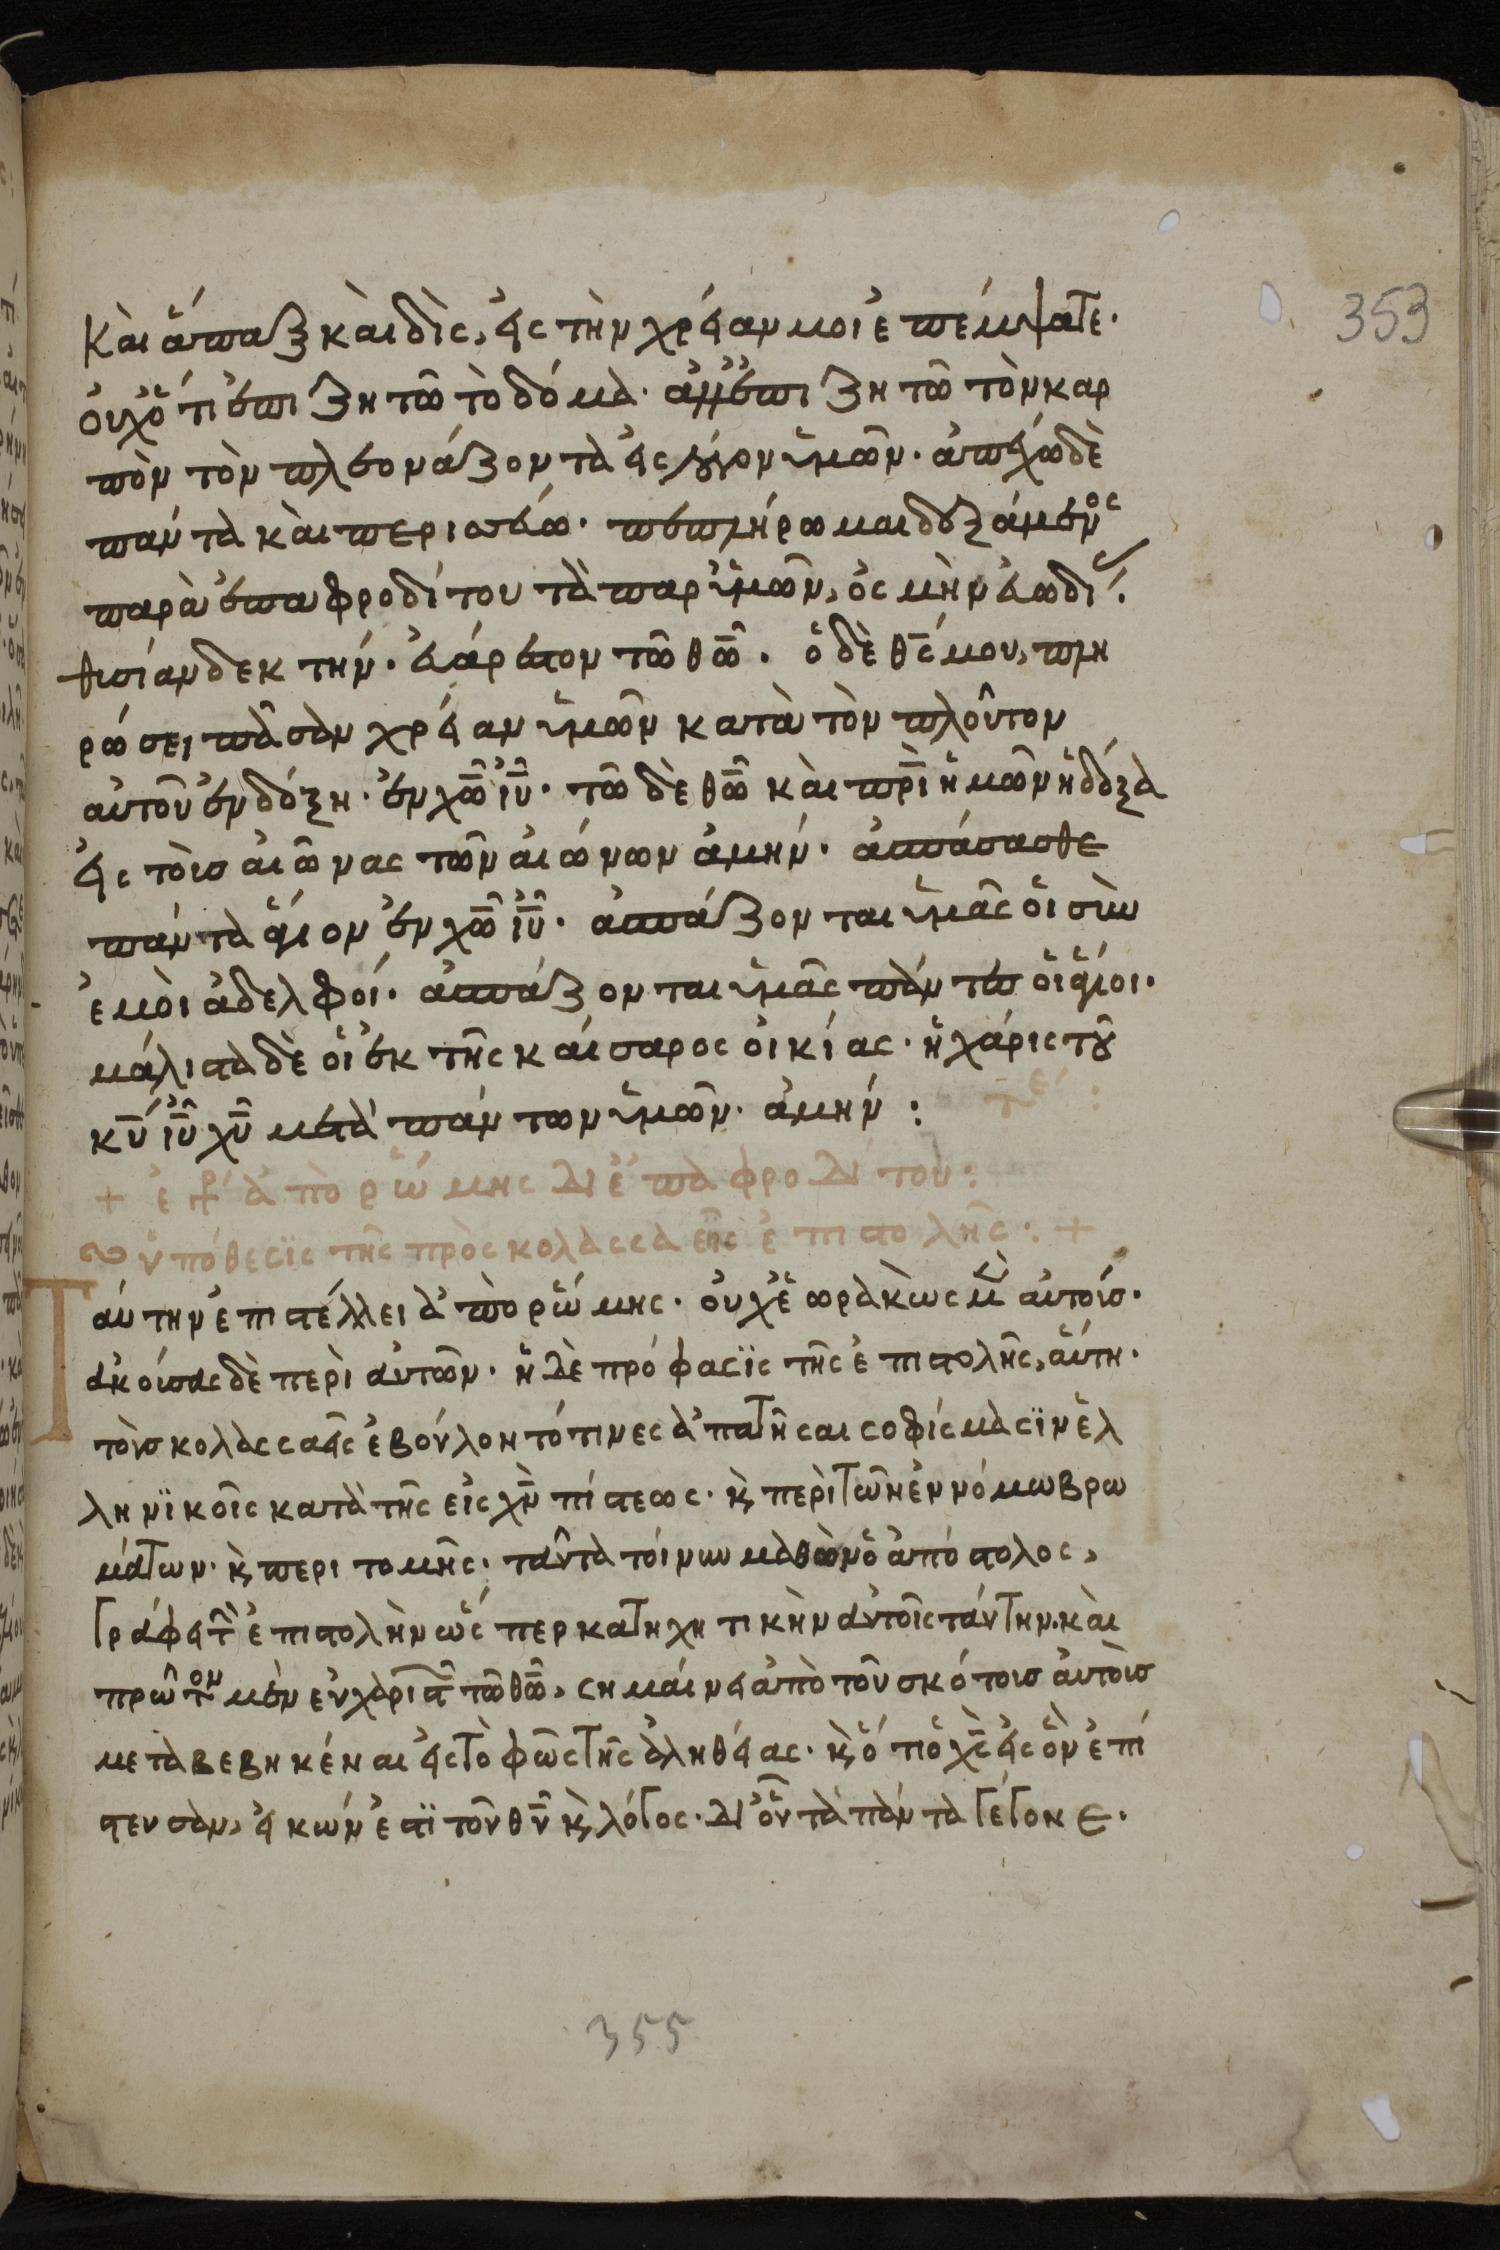 353
καὶ ἅπαξ καὶ δὶς, εἰς τὴν χρείαν μοι ἐπέμψατε·
οὐχ ὅτι ἐπιζητῶ τὸ δόμα· ἀλλ' ἐπιζητῶ τὸν καρ
πὸν τὸν πλεονάζοντα εἰς λόγον ὑμῶν· ἀπέχω δὲ
πάντα καὶ περισσεύω· πεπλήρωμαι δεξάμενος
παρὰ ἐπαφροδίτου τὰ παρ' ὑμῶν, ὀσμὴν εὐωδί
θυσίαν δεκτήν· εὐάρεστον τῶ θω̅· ὁ δὲ θς̅ μου, πλη
ρώσει πᾶσαν χρείαν ὑμῶν κατὰ τὸν πλοῦτον
αὐτοῦ ἐν δόξη· ἐν χω̅ ιυ̅· τῶ δὲ θω̅ καὶ πρι̅ ἡμῶν ἡ δόξα
εἰς τοὺς αἰῶνας τῶν αἰώνων ἀμήν· ἀσπάσασθε
πάντα ἅγιον ἐν χω̅ ιυ̅· ἀσπάζονται ὑμᾶς οἱ σὺν
ἐμοὶ ἀδελφοί· ἀσπάζονται ὑμᾶς πάντες οἱ ἅγιοι·
μάλιστα δὲ οἱ ἐκ τῆς καίσαρος οἰκίας· ἡ χάρις τοῦ
κυ̅ ιυ̅ χυ̅ μετὰ πάντων ὑμῶν· ἀμήν :
+ ἐγρ ἀπὸ ῥώμης δι' ἐπαφροδίτου :
ὑπόθεσϊς τῆς πρὸς κολασσαεῖς ἐπιστολῆς : +
Ταύτην ἐπιστέλλει ἀπὸ ῥώμης· οὐχ ἑωρακὼς μὲν αὐτούς·
ἀκούσας δὲ περὶ αὐτῶν· ἡ δὲ πρόφασϊς τῆς ἐπιστολῆς, αὕτη·
τοὺς κολασσαεῖς ἐβούλοντό τινες ἀπατῆσαι σοφίσμασϊν ἑλ
ληνϊκοῖς κατὰ τῆς εἰς χν̅ πίστεως· κ περὶ τῶν ἐν νόμω βρω
μάτων· κ περιτομῆς· ταῦτα τοίνυν μαθὼν ὁ ἀπόστολος,
γράφει τὴν ἐπιστολὴν ὥσπερ κατηχητικὴν αὐτοῖς ταύτην· καὶ
πρῶτον μὲν εὐχαριστεῖ τῶ θω̅, σημαίνει ἀπὸ τοῦ σκότους αὐτοὺς
μεταβεβηκέναι εἰς τὸ φῶς τῆς ἀληθείας· κ ὅτι ὁ χς̅ εἰς ὃν ἐπί
στευσαν, εἰκών ἐστϊ τοῦ θυ̅ κ λόγος· δι' οὗ τὰ πάντα γέγονε·
355